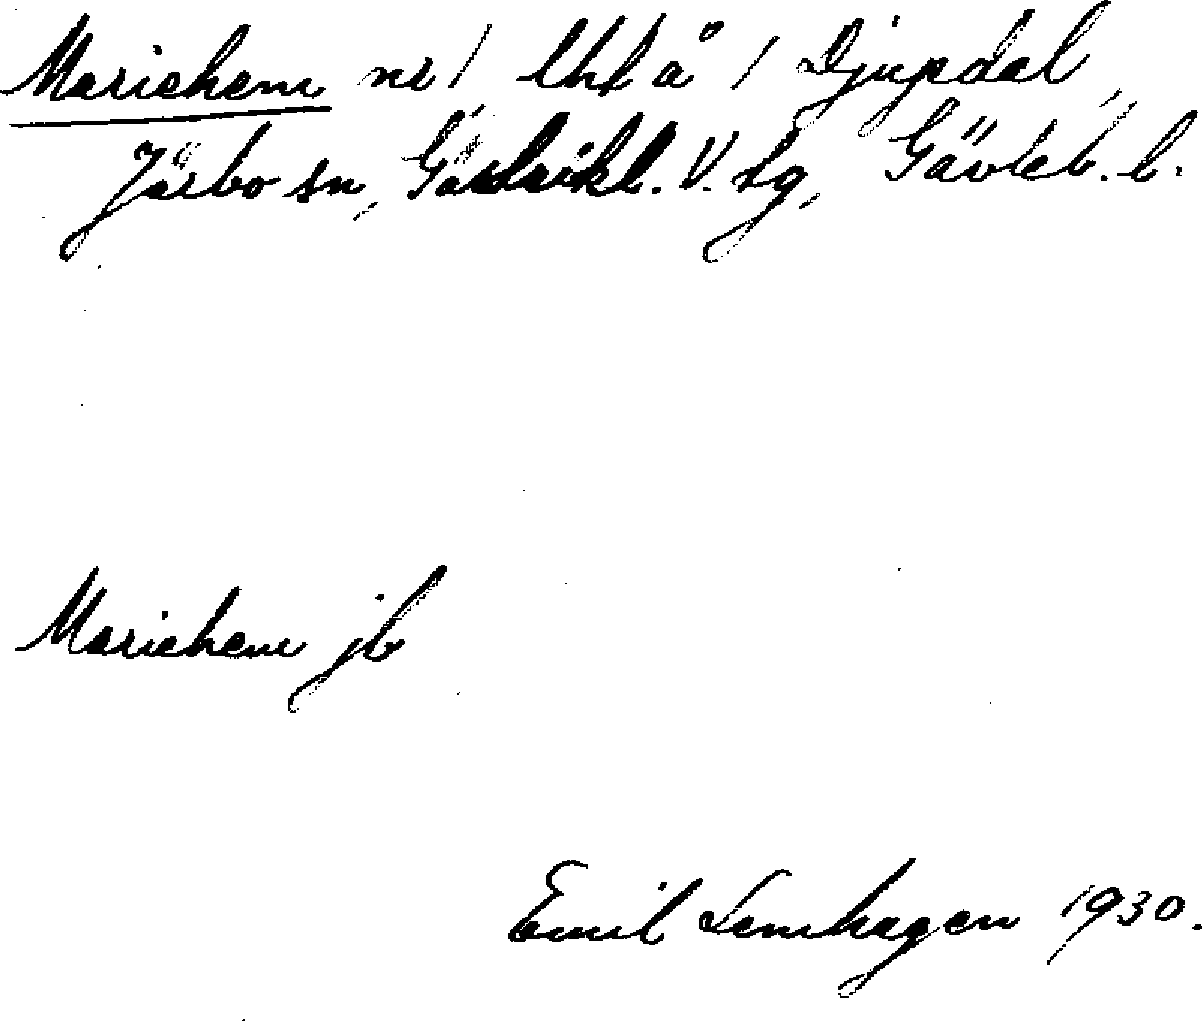 Mariehem nr 1 lht å 1 Djupdal,
Järbo sn, Gästrikl. V. tg, Gävleb. l.
Mariehem jb
Emil Lemhagen 1930.